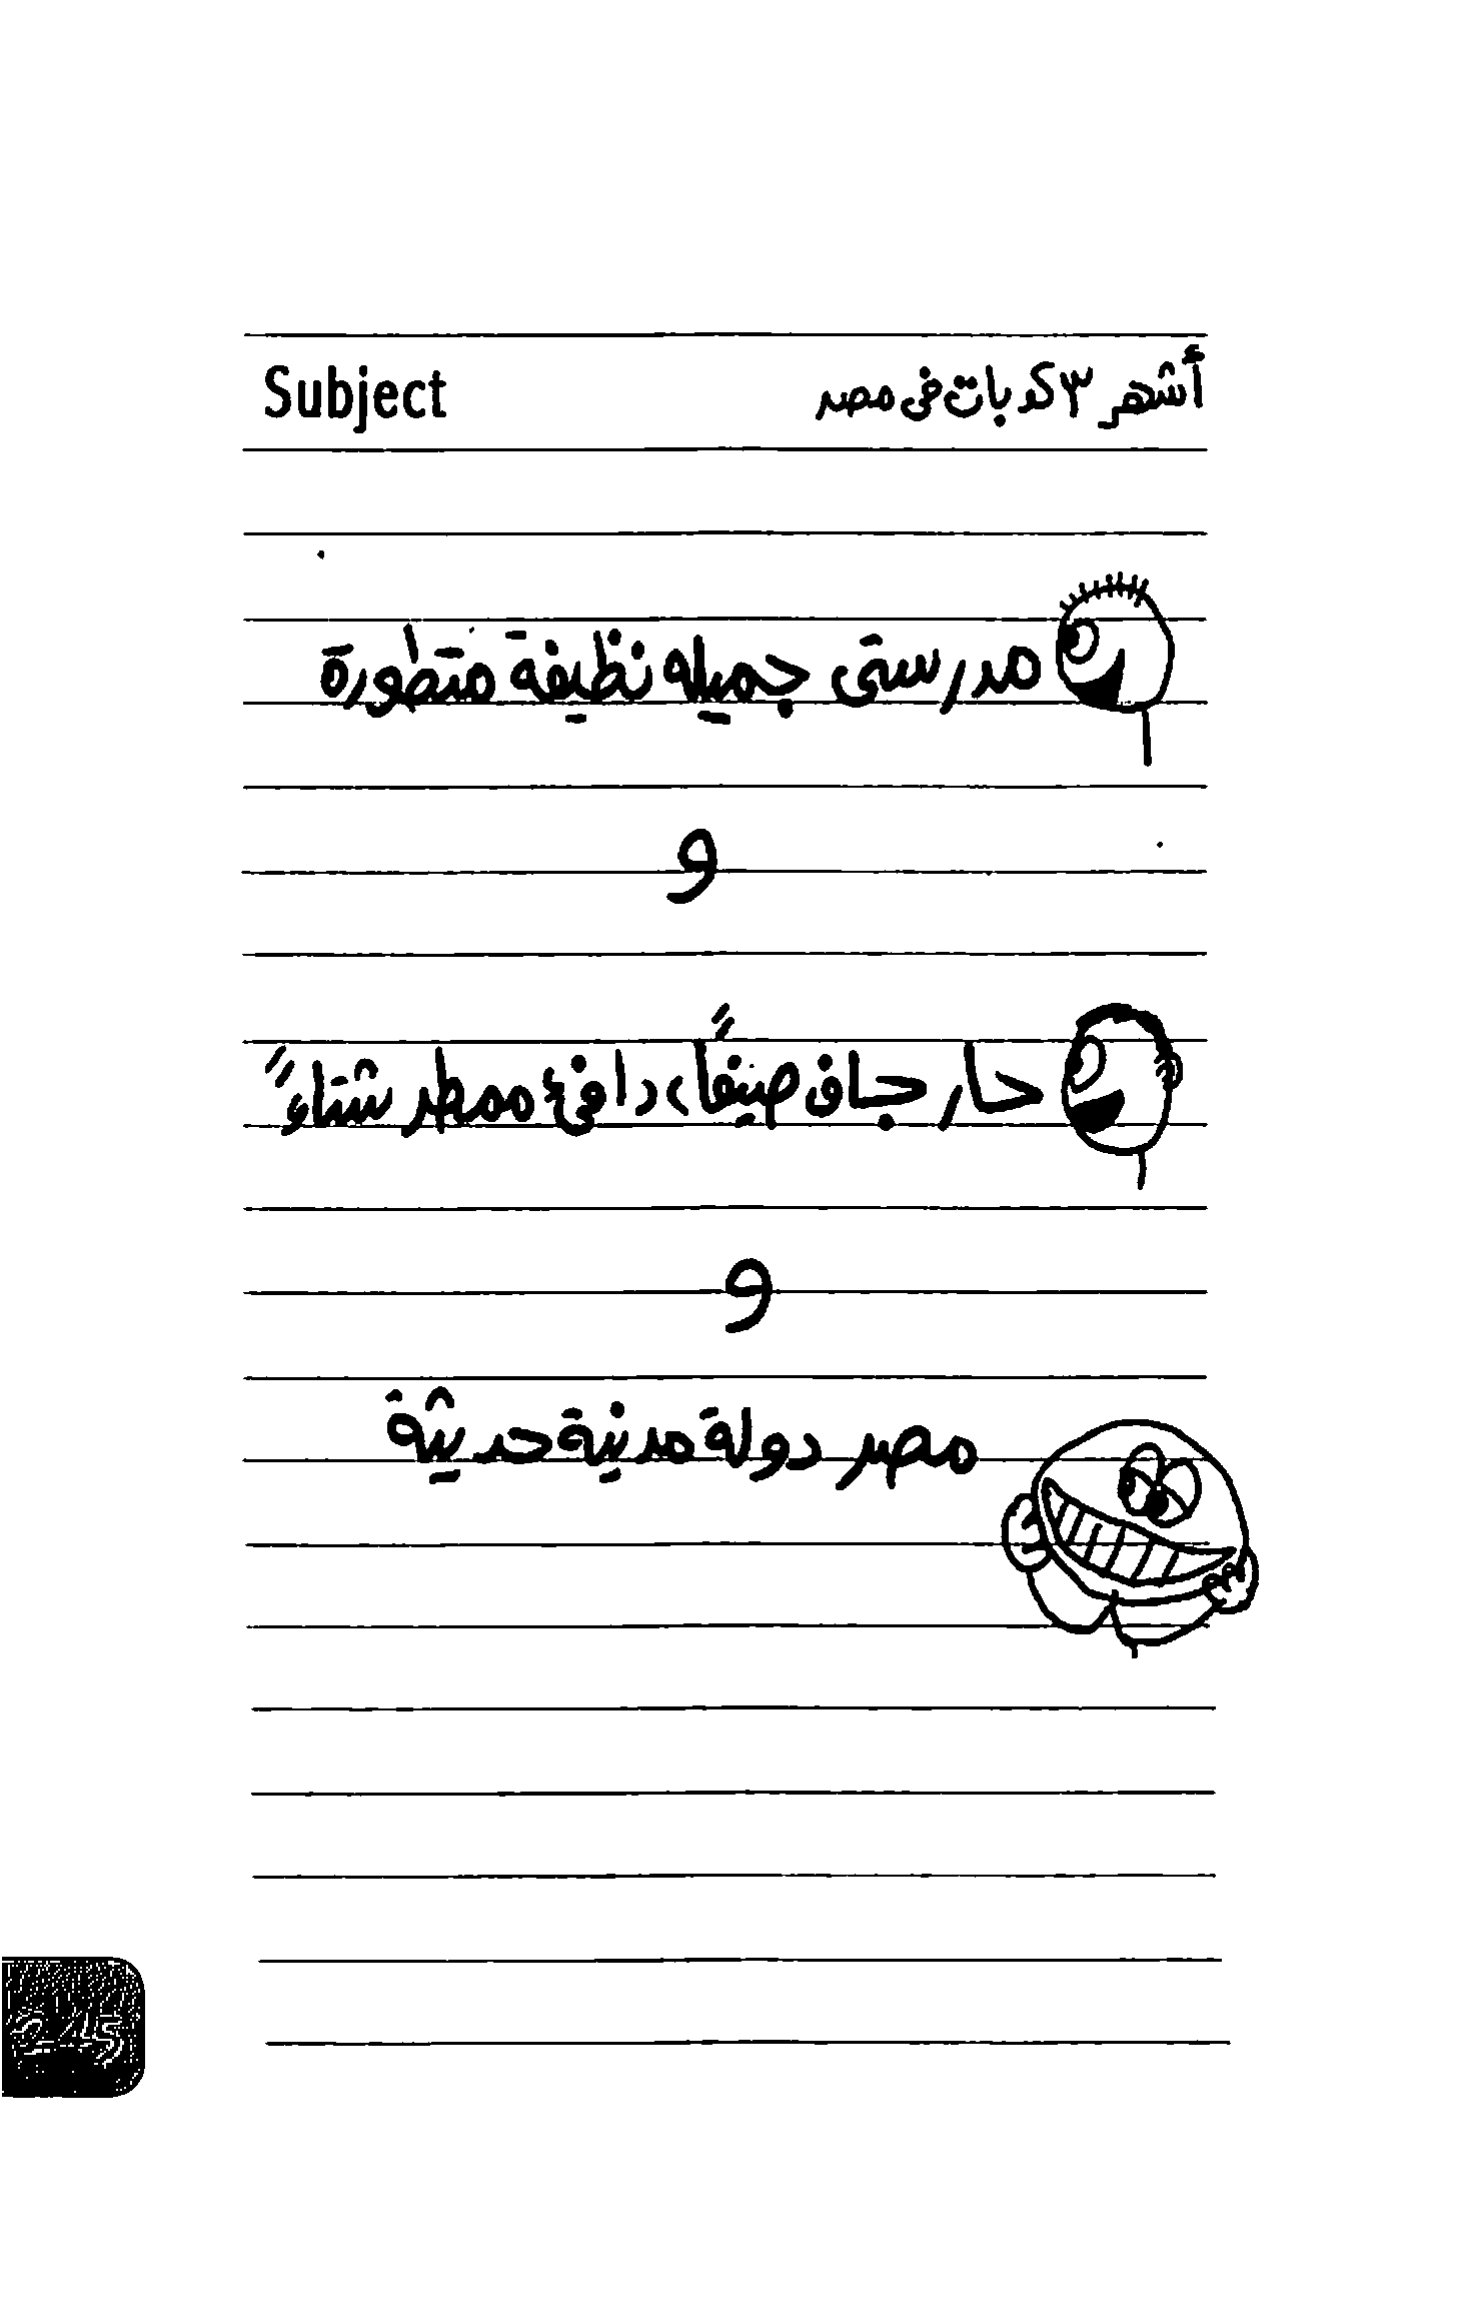 Subject أشهر ٣ كدبات فى مصر
مدرستى جميله نظيفة متطورة
و
حار جاف صيفاً، دافئ ممطر شتاءً
و
مصر دولة مدنية حديثة